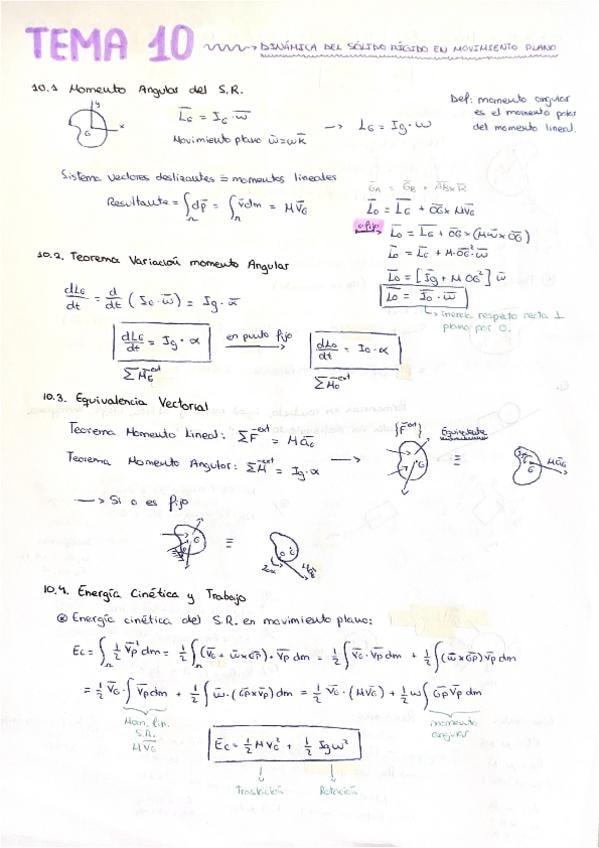 TEMA 10 → DINÁMICA DEL SÓLIDO RÍGIDO EN MOVIMIENTO PLANO
10.1 Momento Angular del S.R.
y
x
G
L̄_G = I_G · ω̄
Movimiento plano ω̄=ωk̄
→ L_G = I_g · ω
Def: momento angular
es el momento polar
del momento lineal.
Sistema vectores deslizantes ≡ momentos lineales
Resultante = ∫ dp̄ = ∫ v̄ dm = M V̄_G
Ḡ_A = Ḡ_B + ĀB × R̄
L̄_O = L̄_G + ŌG × M V̄_G
O fijo → L̄_O = L̄_G + ŌG × (M ω̄ × ŌG)
L̄_O = L̄_G + M · ŌG² · ω̄
L̄_O = [Ī_g + M OG²] ω̄
L̄_O = Ī_O · ω̄
→ inercia respeto recta ⊥
plano por O.
10.2. Teorema Variación momento Angular
dL_G/dt = d/dt (I_G · ω̄) = I_g · ᾱ
dL̄_G/dt = I_g · α
en punto fijo →
dL_O/dt = I_O · α
Σ M̄_G^ext
Σ M̄_O^ext
10.3. Equivalencia Vectorial
Teorema Momento Lineal: Σ F̄^ext = M ā_G
Teorema Momento Angular: Σ M̄^ext = I_g · α
→
{F̄^ext}
G
Equivalente
≡
G
M ā_G
→ Si O es fijo
G
≡
O
G
I_O α
M ā_G
10.4. Energía Cinética y Trabajo
⊛ Energía cinética del S.R. en movimiento plano:
Ec = ∫ 1/2 V̄_P² dm = 1/2 ∫ (V̄_G + ω̄ × ḠP) · V̄_P dm = 1/2 ∫ V̄_G · V̄_P dm + 1/2 ∫ (ω̄ × ḠP) V̄_P dm
= 1/2 V̄_G · ∫ V̄_P dm + 1/2 ∫ ω̄ · (ḠP × V̄_P) dm = 1/2 V̄_G · (M V̄_G) + 1/2 ω ∫ ḠP V̄_P dm
Mom. lin.
S.R.
M V̄_G
momento
angular
Ec = 1/2 M V_G² + 1/2 I_g ω²
Traslación
Rotación